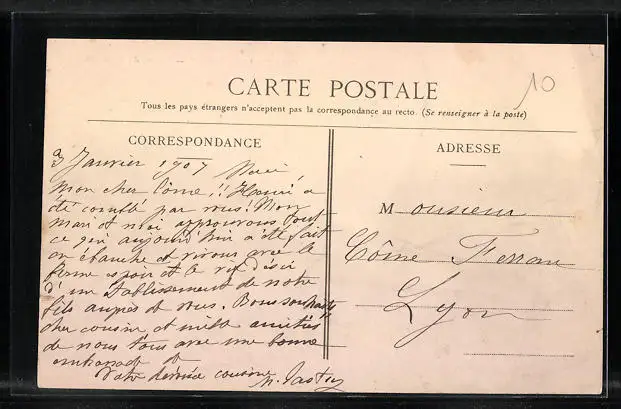 CARTE POSTALE
10
Tous les pays étrangers n'acceptent pas la correspondance au recto. (Se renseigner à la poste)
CORRESPONDANCE
3 Janvier 1907
Mon cher Côme !! Henri a
été comblé par vous! Mon
mari et moi approuvons tout
ce qui aujourd'hui a été fait
en ébauche et vivons avec le
ferme espoir et le vif désir
d'un établissement de notre
fils auprès de vous. Bons souhaits
cher cousin et mille amitiés
de nous tous avec une bonne
embrassade de
votre dévouée cousine
ADRESSE
Monsieur
Côme Ferran
Lyon